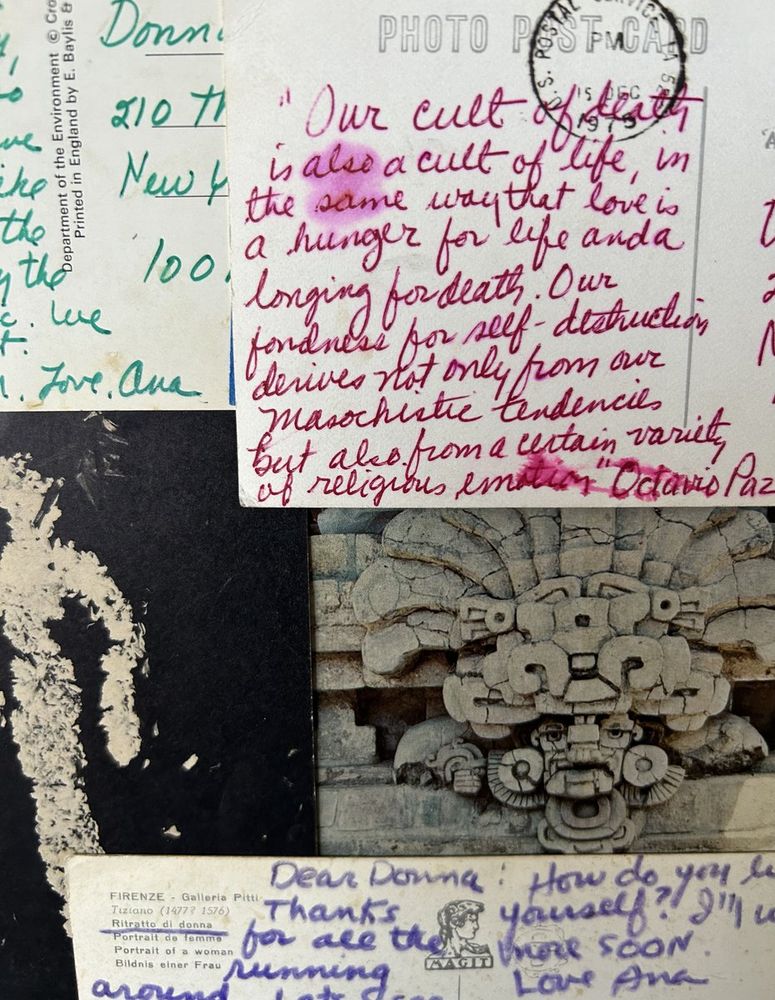 Donn
210 Th
New Y
100
the
. we
. Love, Ana
Department of the Environment © Cro
Printed in England by E. Baylis &
PHOTO POST CARD
U.S. POSTAL SERVICE
PM
15 DEC
1975
"Our cult of death
is also a cult of life, in
the same way that love is
a hunger for life and a
longing for death. Our
fondness for self-destruction
derives not only from our
masochistic tendencies
but also from a certain variety
of religious emotion" Octavio Paz
FIRENZE - Galleria Pitti
Tiziano (1477? 1576)
Ritratto di donna
Portrait de femme
Portrait of a woman
Bildnis einer Frau
MAGIT
Dear Donna: How do you l
Thanks yourself? I'll
for all the more soon.
running Love Ana
around